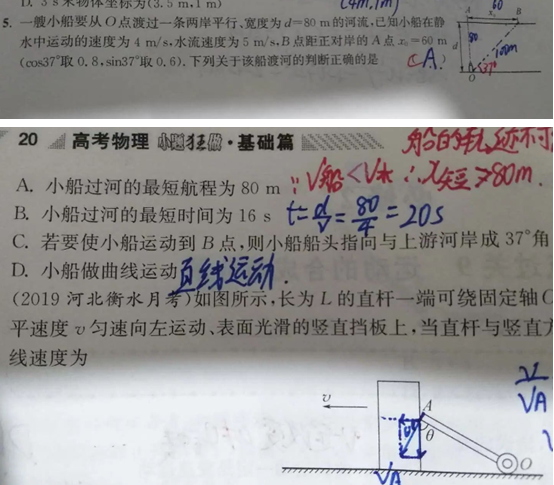 D. 3 s末物体坐标为(3.5 m,1 m)
(4m,1m)
5. 一艘小船要从O点渡过一条两岸平行、宽度为d=80 m的河流,已知小船在静
水中运动的速度为4 m/s,水流速度为5 m/s,B点距正对岸的A点x₀=60 m
(cos37°取0.8,sin37°取0.6).下列关于该船渡河的判断正确的是 ( A. )
60
A x₀ B
d 80 100m
37°
O
20 高考物理 小题狂做·基础篇
船的轨迹不可
A. 小船过河的最短航程为80 m ∵V船<V水 ∴X短>80m.
B. 小船过河的最短时间为16 s t=d/v=80/4=20s
C. 若要使小船运动到B点,则小船船头指向与上游河岸成37°角
D. 小船做曲线运动 直线运动.
(2019河北衡水月考)如图所示,长为L的直杆一端可绕固定轴O
平速度v匀速向左运动、表面光滑的竖直挡板上,当直杆与竖直方
线速度为
v
VA
v
A
θ
θ
O
VA